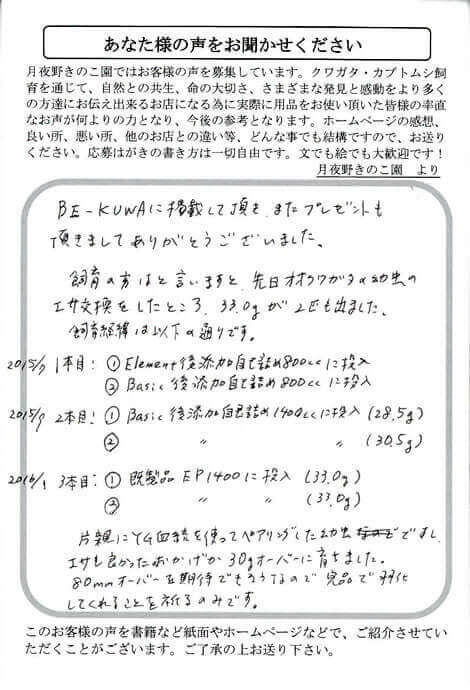 あなた様の声をお聞かせください
月夜野きのこ園ではお客様の声を募集しています。クワガタ・カブトムシ飼
育を通じて、自然との共生、命の大切さ、さまざまな発見と感動をより多く
の方達にお伝え出来るお店になる為に実際に用品をお使い頂いた皆様の率直
なお声が何よりの力となり、今後の参考となります。ホームページの感想、
良い所、悪い所、他のお店との違い等、どんな事でも結構ですので、お送り
ください。応募はがきの書き方は一切自由です。文でも絵でも大歓迎です！
月夜野きのこ園 より
BE-KUWAに掲載して頂き、またプレゼントも
頂きましてありがとうございました。
飼育の方はと言いますと、先日オオクワガタの幼虫の
エサ交換をしたところ、33.0gが2匹も出ました。
飼育経緯は以下の通りです。
2015/7 1本目：① Element後添加自己詰め800ccに投入
② Basic後添加自己詰め800ccに投入
2015/9 2本目：① Basic後添加自己詰め1400ccに投入 (28.5g)
② 〃 〃 (30.5g)
2016/1 3本目：① 既製品 EP1400に投入 (33.0g)
② 〃 〃 (33.0g)
片親にYG血統を使ってペアリングした幼虫ですし、
エサも良かったおかげか30gオーバーに育ちました。
80mmオーバーを期待でもろうなので完品で羽化
してくれることを祈るのみです。
このお客様の声を書籍など紙面やホームページなどで、ご紹介させてい
ただくことがございます。ご了承の上お送り下さい。